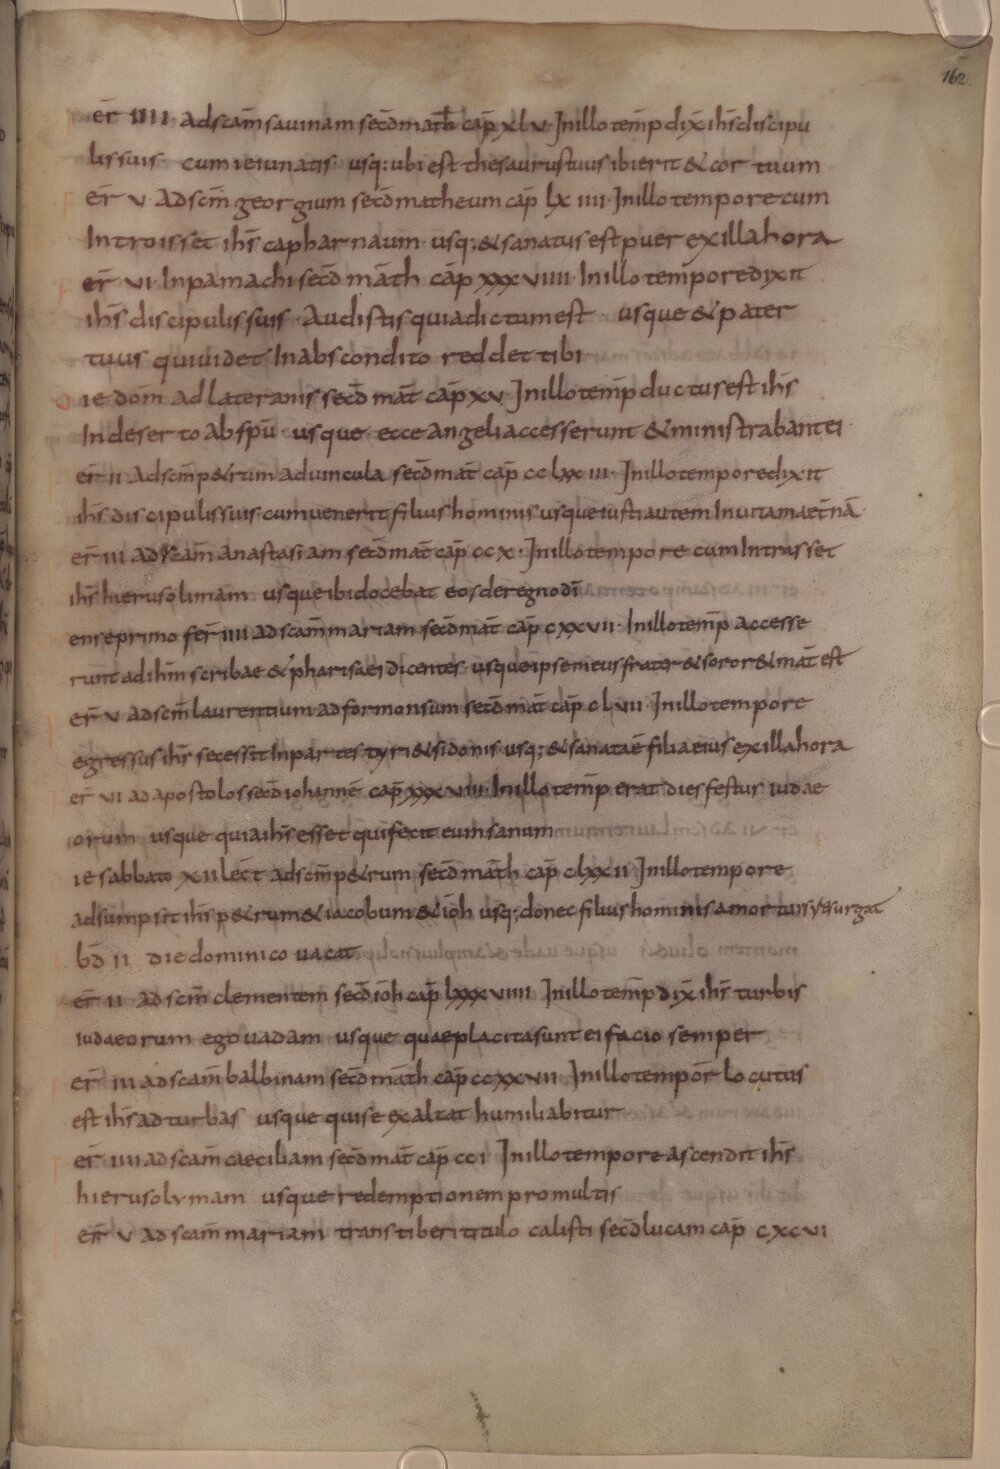 162.
er̄ IIII Adscam̄ sauinam secd̄ math̄ cap̄ xlv Inillo temp̄ dix̄ ih̄s discipu
lis suis cum ieiunatis usq: ubi est thesaurus tuus ibi erit & cor tuum
er̄ v Ad scm̄ georgium secd̄ matheum cap̄ lxiiii Inillo tempore cum
Introisset ih̄s capharnaum usq; & sanatus est puer ex illa hora
er̄ vi Inpamachi secd̄ math̄ cap̄ xxxviiii Inillo tempore dixit
ih̄s discipulis suis Audistis quia dictum est usque & pater
tuus qui uidet In abscondito reddet tibi
ie dom̄ ad Lateranis secd̄ mat̄ cap̄ xv Inillo temp̄ ductus est ih̄s
In deserto ab spū usque ecce angeli accesserunt & ministrabant ei
er̄ ii Adscm̄ p&rum aduincula secd̄ mat̄ cap̄ cclxxiii Inillo tempore dixit
ih̄s discipulis suis cum uenerit filius hominis usque iusti autem In uitam aet̄nā
er̄ iii ad scam̄ anastasiam secd̄ mat̄ cap̄ ccx Inillo tempore cum Intrasset
ih̄s hierusolimam usque ibi docebat eos de regno dī
enseprimo fer̄ iiii ad scam̄ mariam secd̄ mat̄ cap̄ cxxvii Inillo temp̄ accesse
runt ad ih̄m scribae & pharisaei dicentes usque ipse meus frater & soror & mat̄ est
er̄ v adscm̄ laurentium ad formonsum secd̄ mat̄ cap̄ clvii Inillo tempore
egressus ih̄s secessit Inpartes tyri & sidonis usq; & sanata ē filia eius ex illa hora
er̄ vi ad apostolos secd̄ iohannē cap̄ xxxviii Inillo temp̄ erat dies festus iudae
orum usque quia ih̄s esset qui fecit eum sanum
ie sabbato xii lect̄ adscm̄ p&rum secd̄ math̄ cap̄ clxxii Inillo tempore
adsumpsit ih̄s p&rum & iacobum & ioh̄ usq; donec filius hominis a mortuis resurgat
bd̄ ii die dominico uacat
er̄ ii ad scm̄ clementem secd̄ ioh̄ cap̄ lxxxviiii Inillo temp̄ dix̄ ih̄s turbis
iudaeorum ego uadam usque quae placita sunt ei facio semper
er̄ iii ad scam̄ balbinam secd̄ math̄ cap̄ ccxxvii Inillo tempor̄ locutus
est ih̄s ad turbas usque qui se exaltat humiliabitur
er̄ iiii ad scam̄ caeciliam secd̄ mat̄ cap̄ cci Inillo tempore ascendit ih̄s
hierusolymam usque redemptionem pro multis
er̄ v ad scam̄ mariam transtiberi titulo calisti secd̄ lucam cap̄ cxcvi